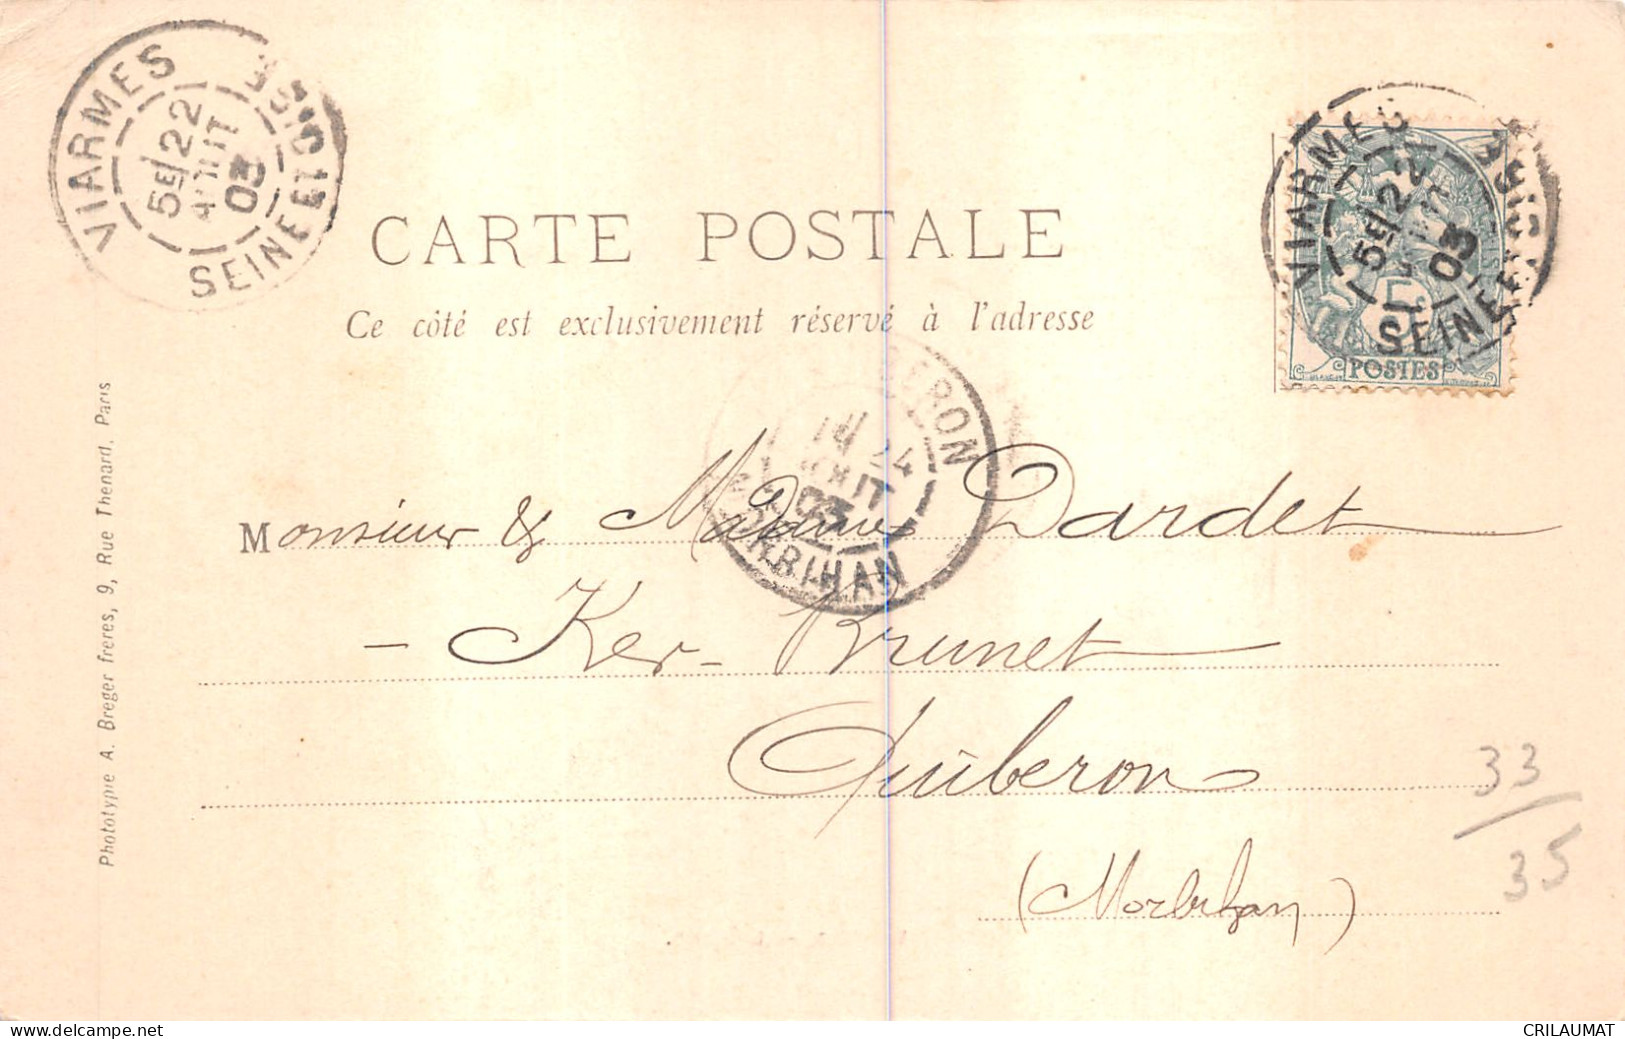 VIARMES
5E/22
AOUT
03
SEINE ET OISE
VIARMES
5E/22
03
SEINE ET OISE
5c
POSTES
CARTE POSTALE
Ce côté est exclusivement réservé à l'adresse
QUIBERON
24
AOUT
03
MORBIHAN
Monsieur & Madame Dardet
- Ker-Brunet
Quiberon
(Morbihan)
33/35
Phototypie A. Breger freres, 9, Rue Thenard, Paris
www.delcampe.net
CRILAUMAT